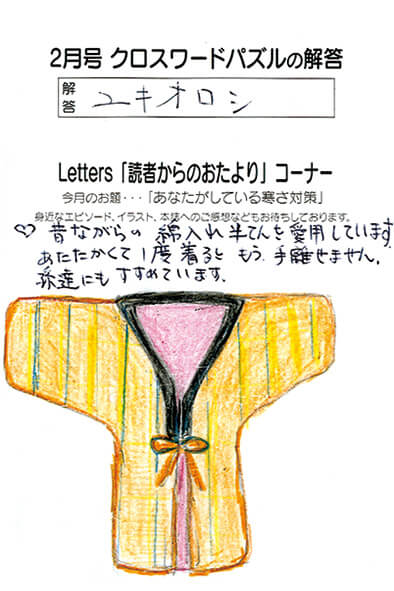 2月号 クロスワードパズルの解答
解答 ユキオロシ
Letters「読者からのおたより」コーナー
今月のお題・・・「あなたがしている寒さ対策」
身近なエピソード、イラスト、本誌へのご感想などもお待ちしております。
♡ 昔ながらの綿入れ半てんを愛用しています
あたたかくて1度着るともう手離せません。
孫達にもすすめています。